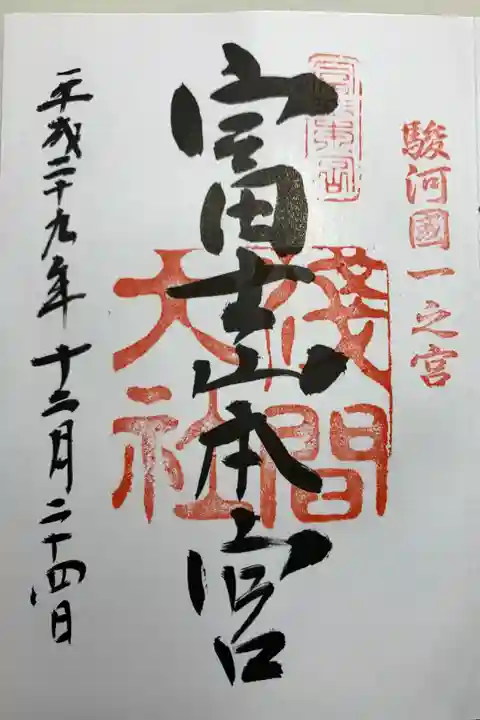 駿河國一之宮
富士山本宮
浅間
大社
平成二十九年十二月二十四日